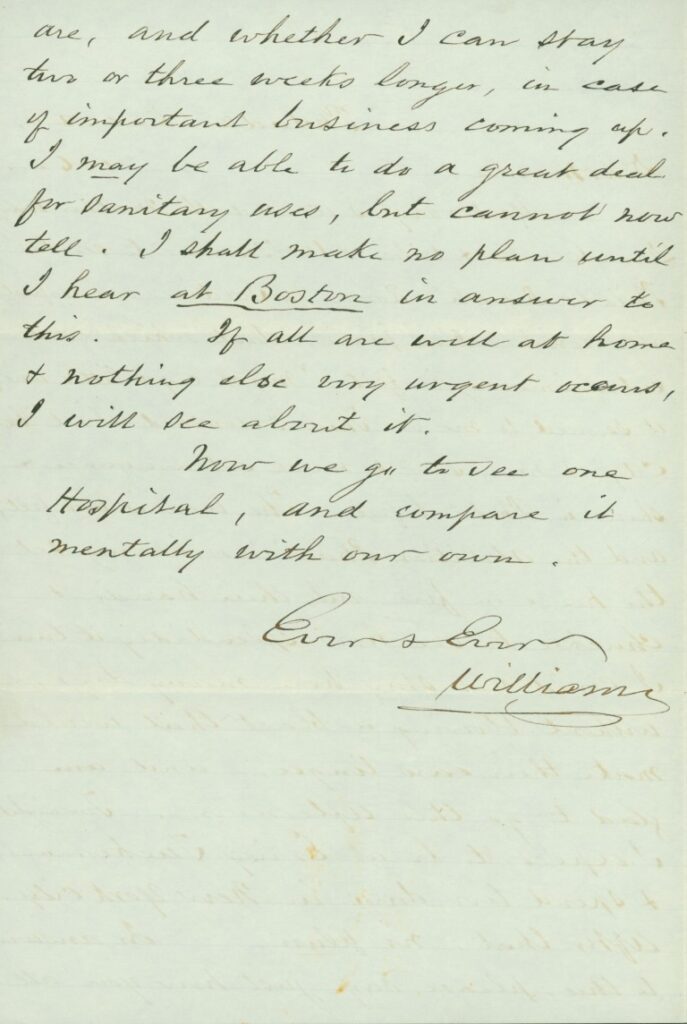 are, and whether I can stay
two or three weeks longer, in case
of important business coming up.
I may be able to do a great deal
for Sanitary uses, but cannot now
tell. I shall make no plan until
I hear at Boston in answer to
this. If all are well at home
& nothing else very urgent occurs,
I will see about it.
Now we go to see one
Hospital, and compare it
mentally with our own.
Ever & Ever
William